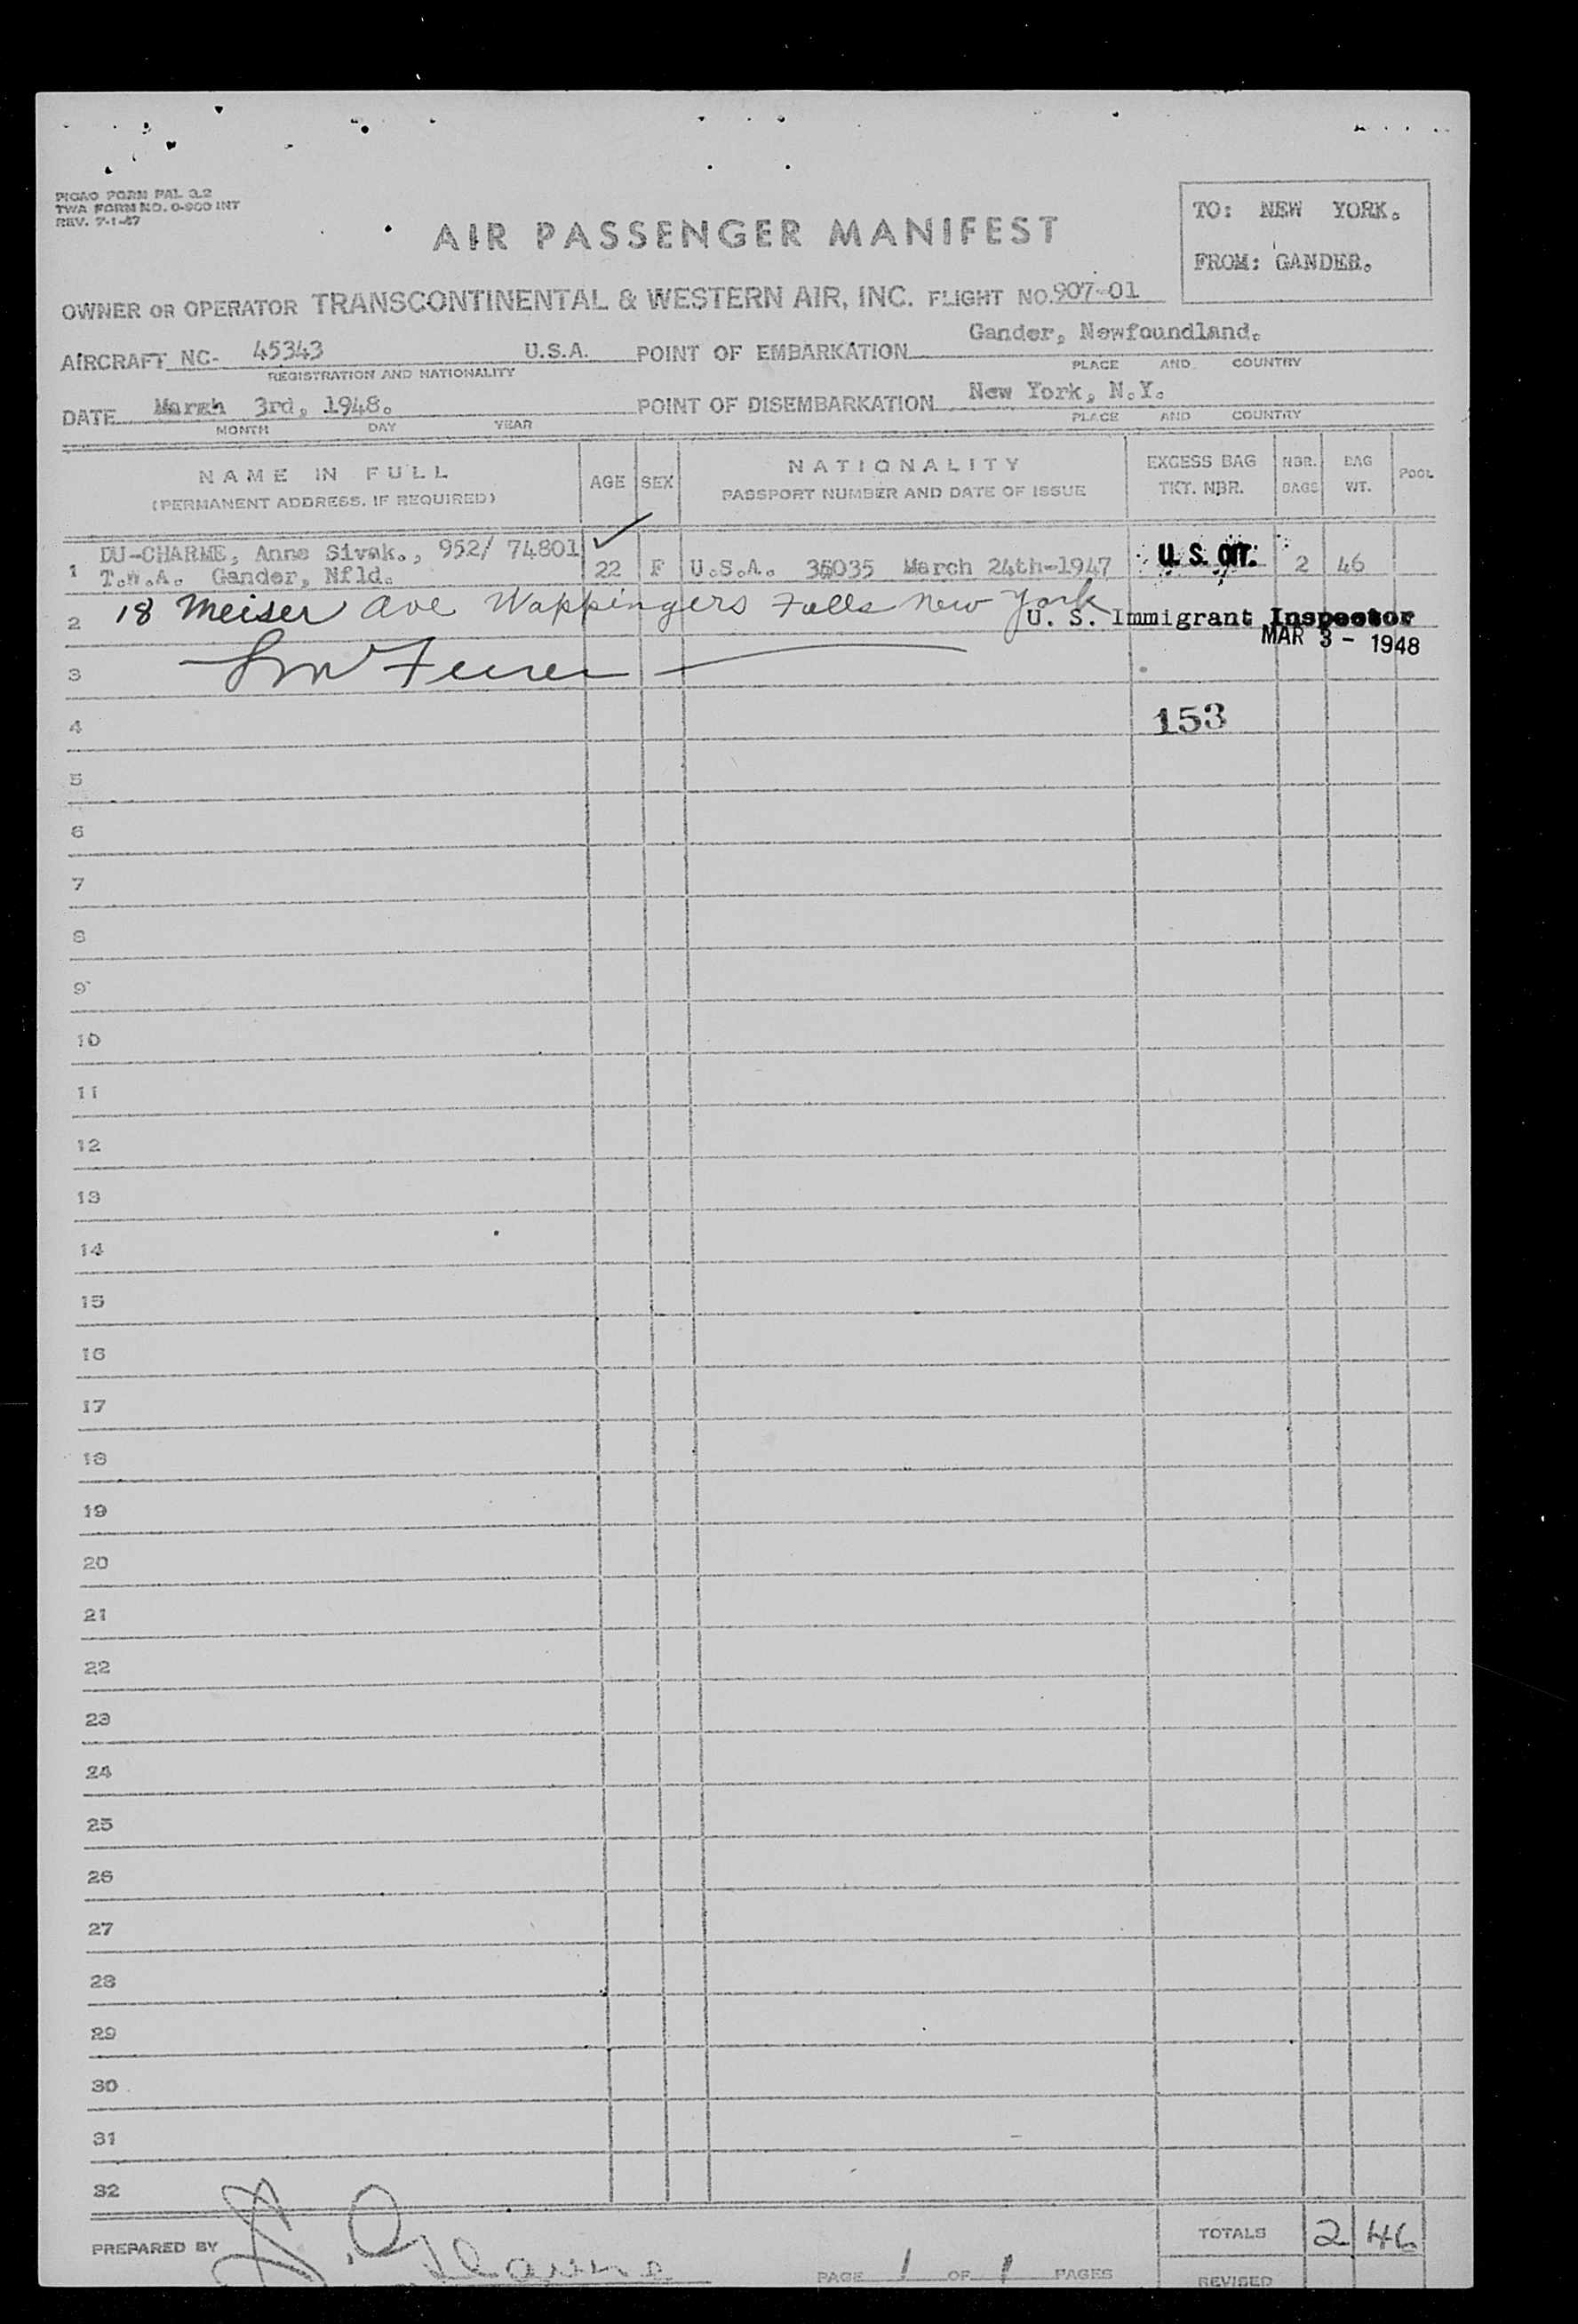 PICAO FORM PAL 3.2
TWA FORM NO. 0-900 INT
REV. 7-1-47
AIR PASSENGER MANIFEST
TO: NEW YORK.
FROM: GANDER.
OWNER OR OPERATOR TRANSCONTINENTAL & WESTERN AIR, INC. FLIGHT NO. 907-01
AIRCRAFT NC- 45343 U.S.A. POINT OF EMBARKATION Gander, Newfoundland.
REGISTRATION AND NATIONALITY PLACE AND COUNTRY
DATE March 3rd, 1948. POINT OF DISEMBARKATION New York, N.Y.
MONTH DAY YEAR PLACE AND COUNTRY
NAME IN FULL AGE SEX NATIONALITY EXCESS BAG NBR. BAG POOL
(PERMANENT ADDRESS, IF REQUIRED) PASSPORT NUMBER AND DATE OF ISSUE TKT. NBR. BAGS WT.
DU-CHARME, Anne Sivak., 952/ 74801
1 T.W.A. Gander, Nfld. 22 F U.S.A. 35035 March 24th-1947 U. S. CIT. 2 46
2 18 Meiser Ave Wappingers Falls New York U. S. Immigrant Inspector
MAR 3 - 1948
3
4 153
5
6
7
8
9
10
11
12
13
14
15
16
17
18
19
20
21
22
23
24
25
26
27
28
29
30
31
32
PREPARED BY TOTALS 2 46
PAGE 1 OF 1 PAGES REVISED